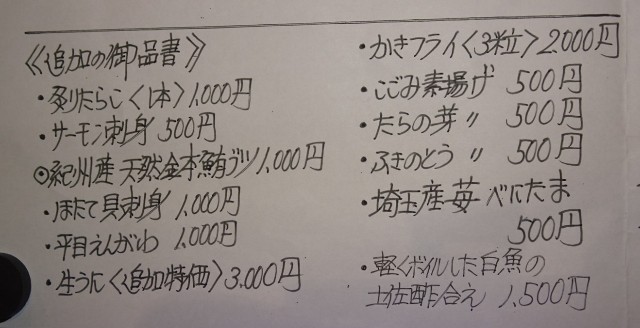 《追加の御品書》
・炙りたらこ〈1本〉1,000円
・サーモン刺身 500円
◎紀州産 天然金本鮪ブツ 1,000円
・ほたて貝刺身 1,000円
・平目えんがわ 1,000円
・生うに〈追加特価〉3.000円
・かきフライ〈3粒〉2.000円
・こごみ素揚げ 500円
・たらの芽 〃 500円
・ふきのとう 〃 500円
・埼玉産苺 べにたま
500円
・軽くボイルした白魚の
土佐酢合え 1,500円